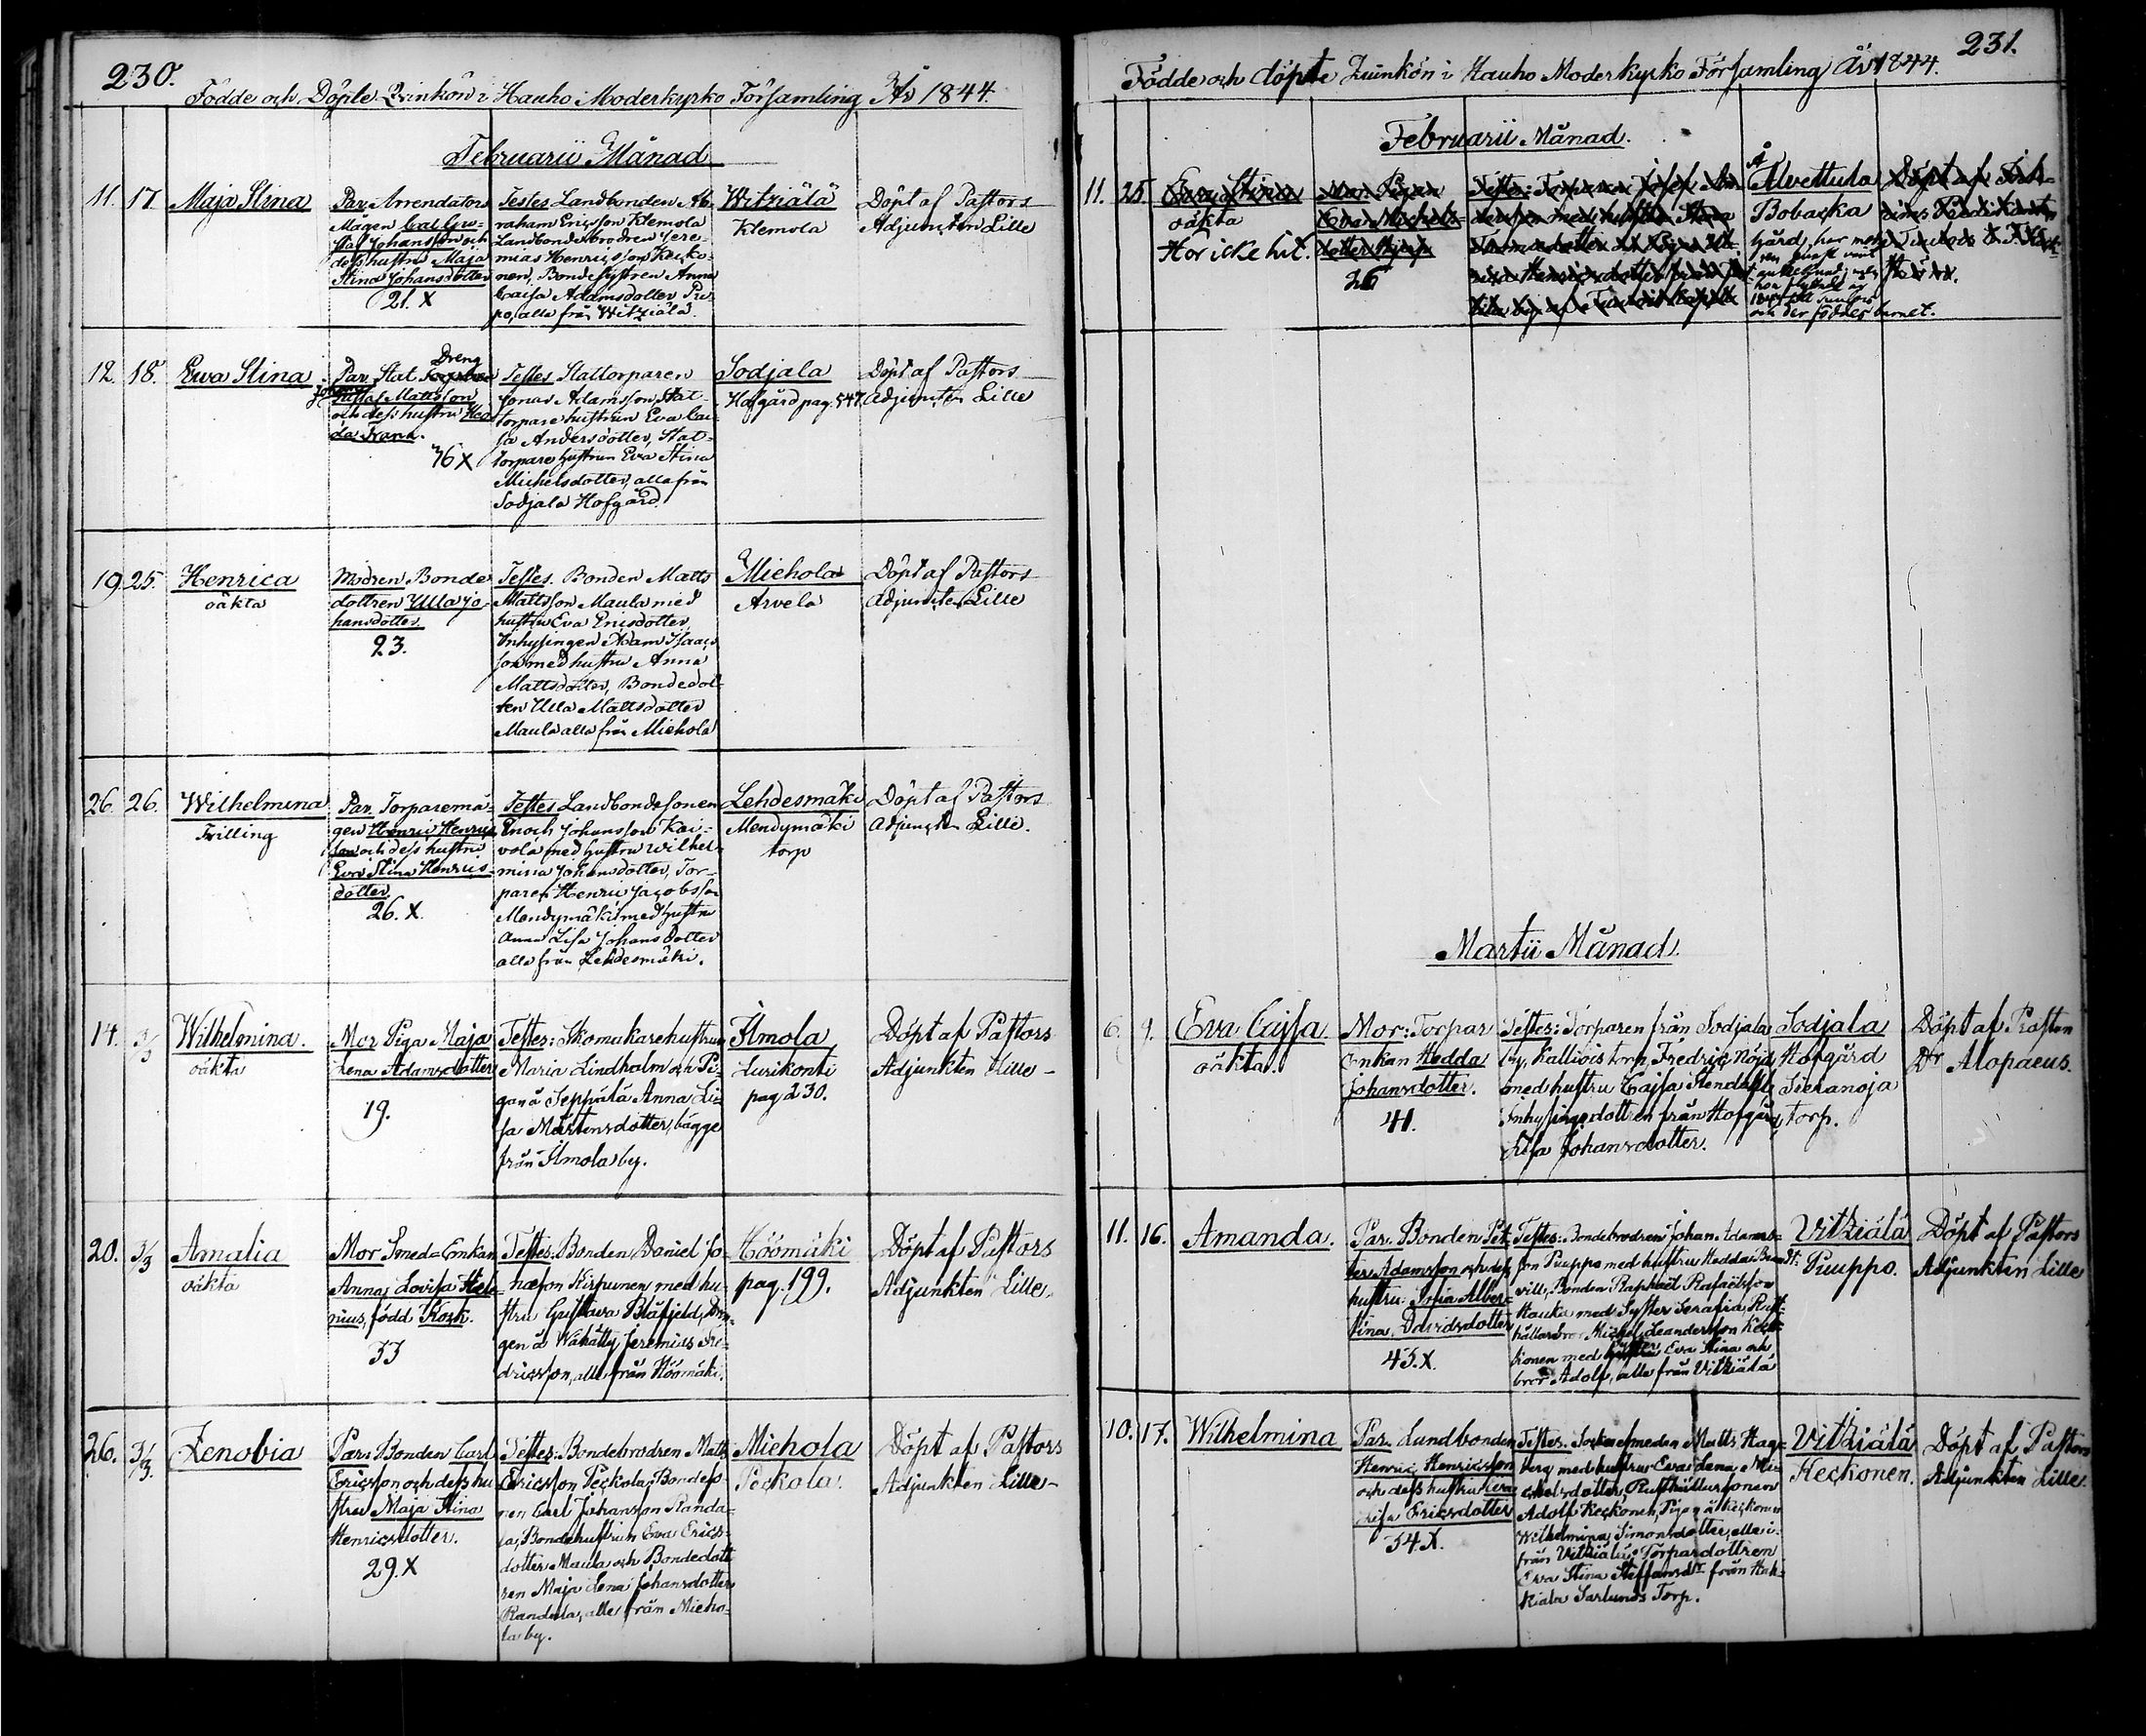 230.
Födde och Döpte Qvinkön i Hauho Moderkyrko Församling År 1844.
Februarii Månad
11. 17. Maja Stina
Par. Arrendators
Mågen Carl Gu-
staf Johansson och
dess hustru Maja
Stina Johansdotter
21. X
Testes Landbonden Ab-
raham Ericsson Klemola
Landbondebrodren Jere-
mias Henricsson Kecko-
nen, Bondesystren Anna
Caisa Adamsdotter Pu-
po, alla från Witziälä.
Witziälä
Klemola
Döpt af Pastors
Adjuncten Lille
12. 18. Ewa Stina
Dreng
Par Stat
Gustaf Mattsson
och dess hustru Hed-
da Frank.
36 X
Testes Stattorparen
Jonas Adamsson, Stat-
torpare hustrun Eva Cai-
sa Andersdotter, Stat-
torpare hustrun Eva Stina
Michelsdotter, alla från
Sodjala Hofgård.
Sodjala
Hofgård pag. 547.
Döpt af Pastors
Adjuncten Lille
19. 25. Henrica
oäkta
Modren Bonde
dottren Ulla Jo-
hansdotter.
23.
Testes. Bonden Matts
Mattsson Maula med
hustru Eva Ericsdotter,
Inhysingen Adam Isaacs
son med hustru Anna
Mattsdotter, Bondedot-
tren Ulla Mattsdotter
Maula alla från Miehola
Miehola
Arvela
Döpt af Pastors
Adjuncten Lille
26. 26. Wilhelmina
Trilling
Par. Torparemå-
gen Henric Henrics
son och dess hustru
Eva Stina Henrics-
dotter.
26. X.
Testes Landbondesonen
Enoch Johansson Kai-
vola med hustru Wilhel-
mina Johansdotter, Tor-
paren Henric Jacobsson
Mendymäki med hustru
Anna Lisa Johansdotter
alla från Lehdesmäki.
Lehdesmäki
Mendymäki
torp
Döpt af Pastors
Adjuncten Lille.
14. 3/3 Wilhelmina.
oäkta
Mor Piga Maja
Lena Adamsdotter
19.
Testes: Skomakarehustrun
Maria Lindholm och Pi-
gan å Seppälä Anna Li-
sa Mårtensdotter, bägge
från Ilmola by.
Ilmola
Lurikonti
pag 230.
Döpt af Pastors
Adjunkten Lille-
20. 3/3 Amalia
oäkta
Mor Smed-Enkan
Anna Lovisa Hele-
nius, född Kock.
33
Testes. Bonden Daniel Jo-
hansson Kirpunen med hu-
stru Gustava Blåfjeld, Drän-
gen å Wähätty Jeremias Fre-
dricsson, alla från Höömäki.
Höömäki
pag. 199.
Döpt af Pastors
Adjunkten Lille.
26. 3/3. Zenobia
Par: Bonden Carl
Ericsson och dess hu
stru Maja Stina
Henricsdotter.
29. X
Testes. Bondebrodren Matts
Ericsson Peckola, Bondeso
nen Carl Johansson Randa-
la, Bondehustrun Eva Erics-
dotter Maula och Bondedott
ren Maja Lena Johansdotter
Randala, alla från Mieho-
la by.
Miehola
Peckola.
Döpt af Pastors
Adjunkten Lille-
231.
Födde och döpte Quinkön i Hauho Moderkyrko Församling År 1844.
Februarii Månad.
11. 25. Eva Stina
oäkta
Hör icke hit.
Mor. Pigan
26
Alvettula
Bobacka
6. 9. Eva Cajsa.
oäkta.
Martii Månad.
Mor: Torpar
Enkan Hedda
Johansdotter.
41.
Testes: Torparen från Sodjala
by, Kalliois torp, Fredric Nöjd
med hustru Cajsa Stendahl,
Inhysingsdottren från Hofgård,
Lisa Johansdotter.
Sodjala
Hofgård
Sieranoja
torp.
Döpt af Prosten
Dr Alopaeus.
11. 16. Amanda.
Par. Bonden Pet-
ter Adamsson och dess
hustru Sofia Alber-
tina Davidsdotter
43. X.
Testes: Bondebrodren Johan Adams-
son Puuppo med hustru Hedda
Bonden Raphael Rafaëlsson
Hauka med Syster Serafia, Rust-
hållarebror Michel Leandersson Keck-
konen med Syster Eva Stina och
bror Adolf, alla från Vitziälä
Vitziälä
Puuppo.
Döpt af Pastors
Adjunkten Lille
10. 17. Wilhelmina
Par. Landbonden
Henric Henricsson
och dess hustru Eva
Lisa Ericsdotter
34. X.
Testes. Sockensmeden Matts Hag-
berg med hustru Eva Lena Mi-
chelsdotter, Rusthållarsonen
Adolf Keckonen, Pigan å Keckonen
Wilhelmina Simonsdotter, alla i.
från Vitziälä; Torpardottren
Eva Stina Steffansdr från Hah-
kiala Sarlunds Torp.
Vitziälä
Keckonen.
Döpt af Pastors
Adjunkten Lille.